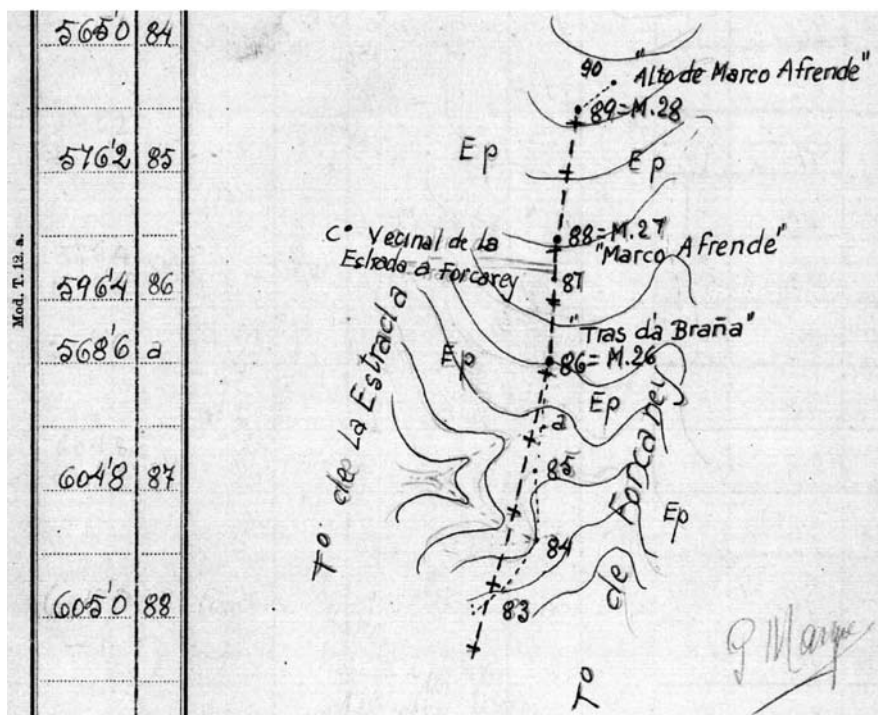 565'0 84
576'2 85
596'4 86
568'6 a
604'8 87
605'0 88
Mod. T. 12. a.
90
"Alto de Marco Afrende"
89=M.28
Ep
Ep
88=M.27
"Marco Afrende"
Cº Vecinal de la
Estrada a Forcarey
87
"Tras da Braña"
86=M.26
Ep
Ep
a
85
Ep
84
83
Tº de La Estrada
Tº de Forcarey